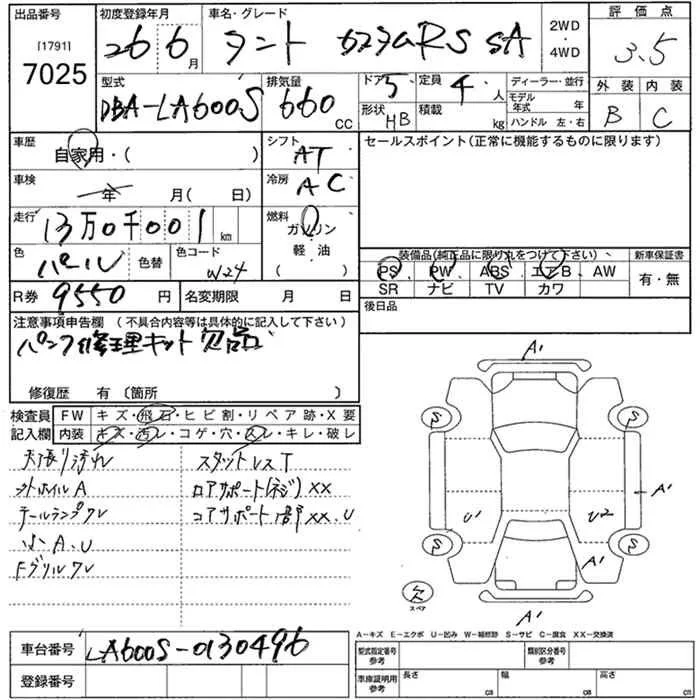 出品番号 初度登録年月 車名・グレード 評価点
[1791] 7025 26 6月 タント カスタムRS SA 2WD・4WD 3.5
型式 排気量 ドア 5 定員 4人 ディーラー・並行 外装 内装
DBA-LA600S 660cc 形状 HB 積載 kg モデル年式 年 B C
ハンドル 左・右
車歴 シフト セールスポイント(正常に機能するものに限ります)
自家用・( ) AT
車検 冷房
年 月( 日) AC
走行 13万0千001km 燃料
ガソリン
色 パール 色替 色コード W24 軽・油
( )
装備品(純正品に限り丸をつけて下さい) 新車保証書
PS、PW、ABS、エアB、AW 有・無
SR ナビ TV カワ
R券 9550円 名変期限 月 日 後日品
注意事項申告欄 (不具合内容等は具体的に記入して下さい)
パンク修理キット欠品
修復歴 有〔箇所 〕
検査員 FW キズ・飛石・ヒビ割・リペア跡・X要
記入欄 内装 キズ・汚レ・コゲ・穴・スレ・キレ・破レ
天張り汚れ スタットレスT
外ホイルA ロアサポート(ネジ)XX
テールランプワレ コアサポート XX、U
小A、U
Fグリルワレ
A'
S S
A'
U' U2
S S
A'
欠
スペア
A'
A-キズ E-エクボ U-凹み W-補修跡 S-サビ C-腐食 XX-交換済
車台番号 LA600S-0130496
型式指定番号 参考 類別区分番号 参考
登録番号
車庫証明用 参考 長さ cm 幅 cm 高さ cm